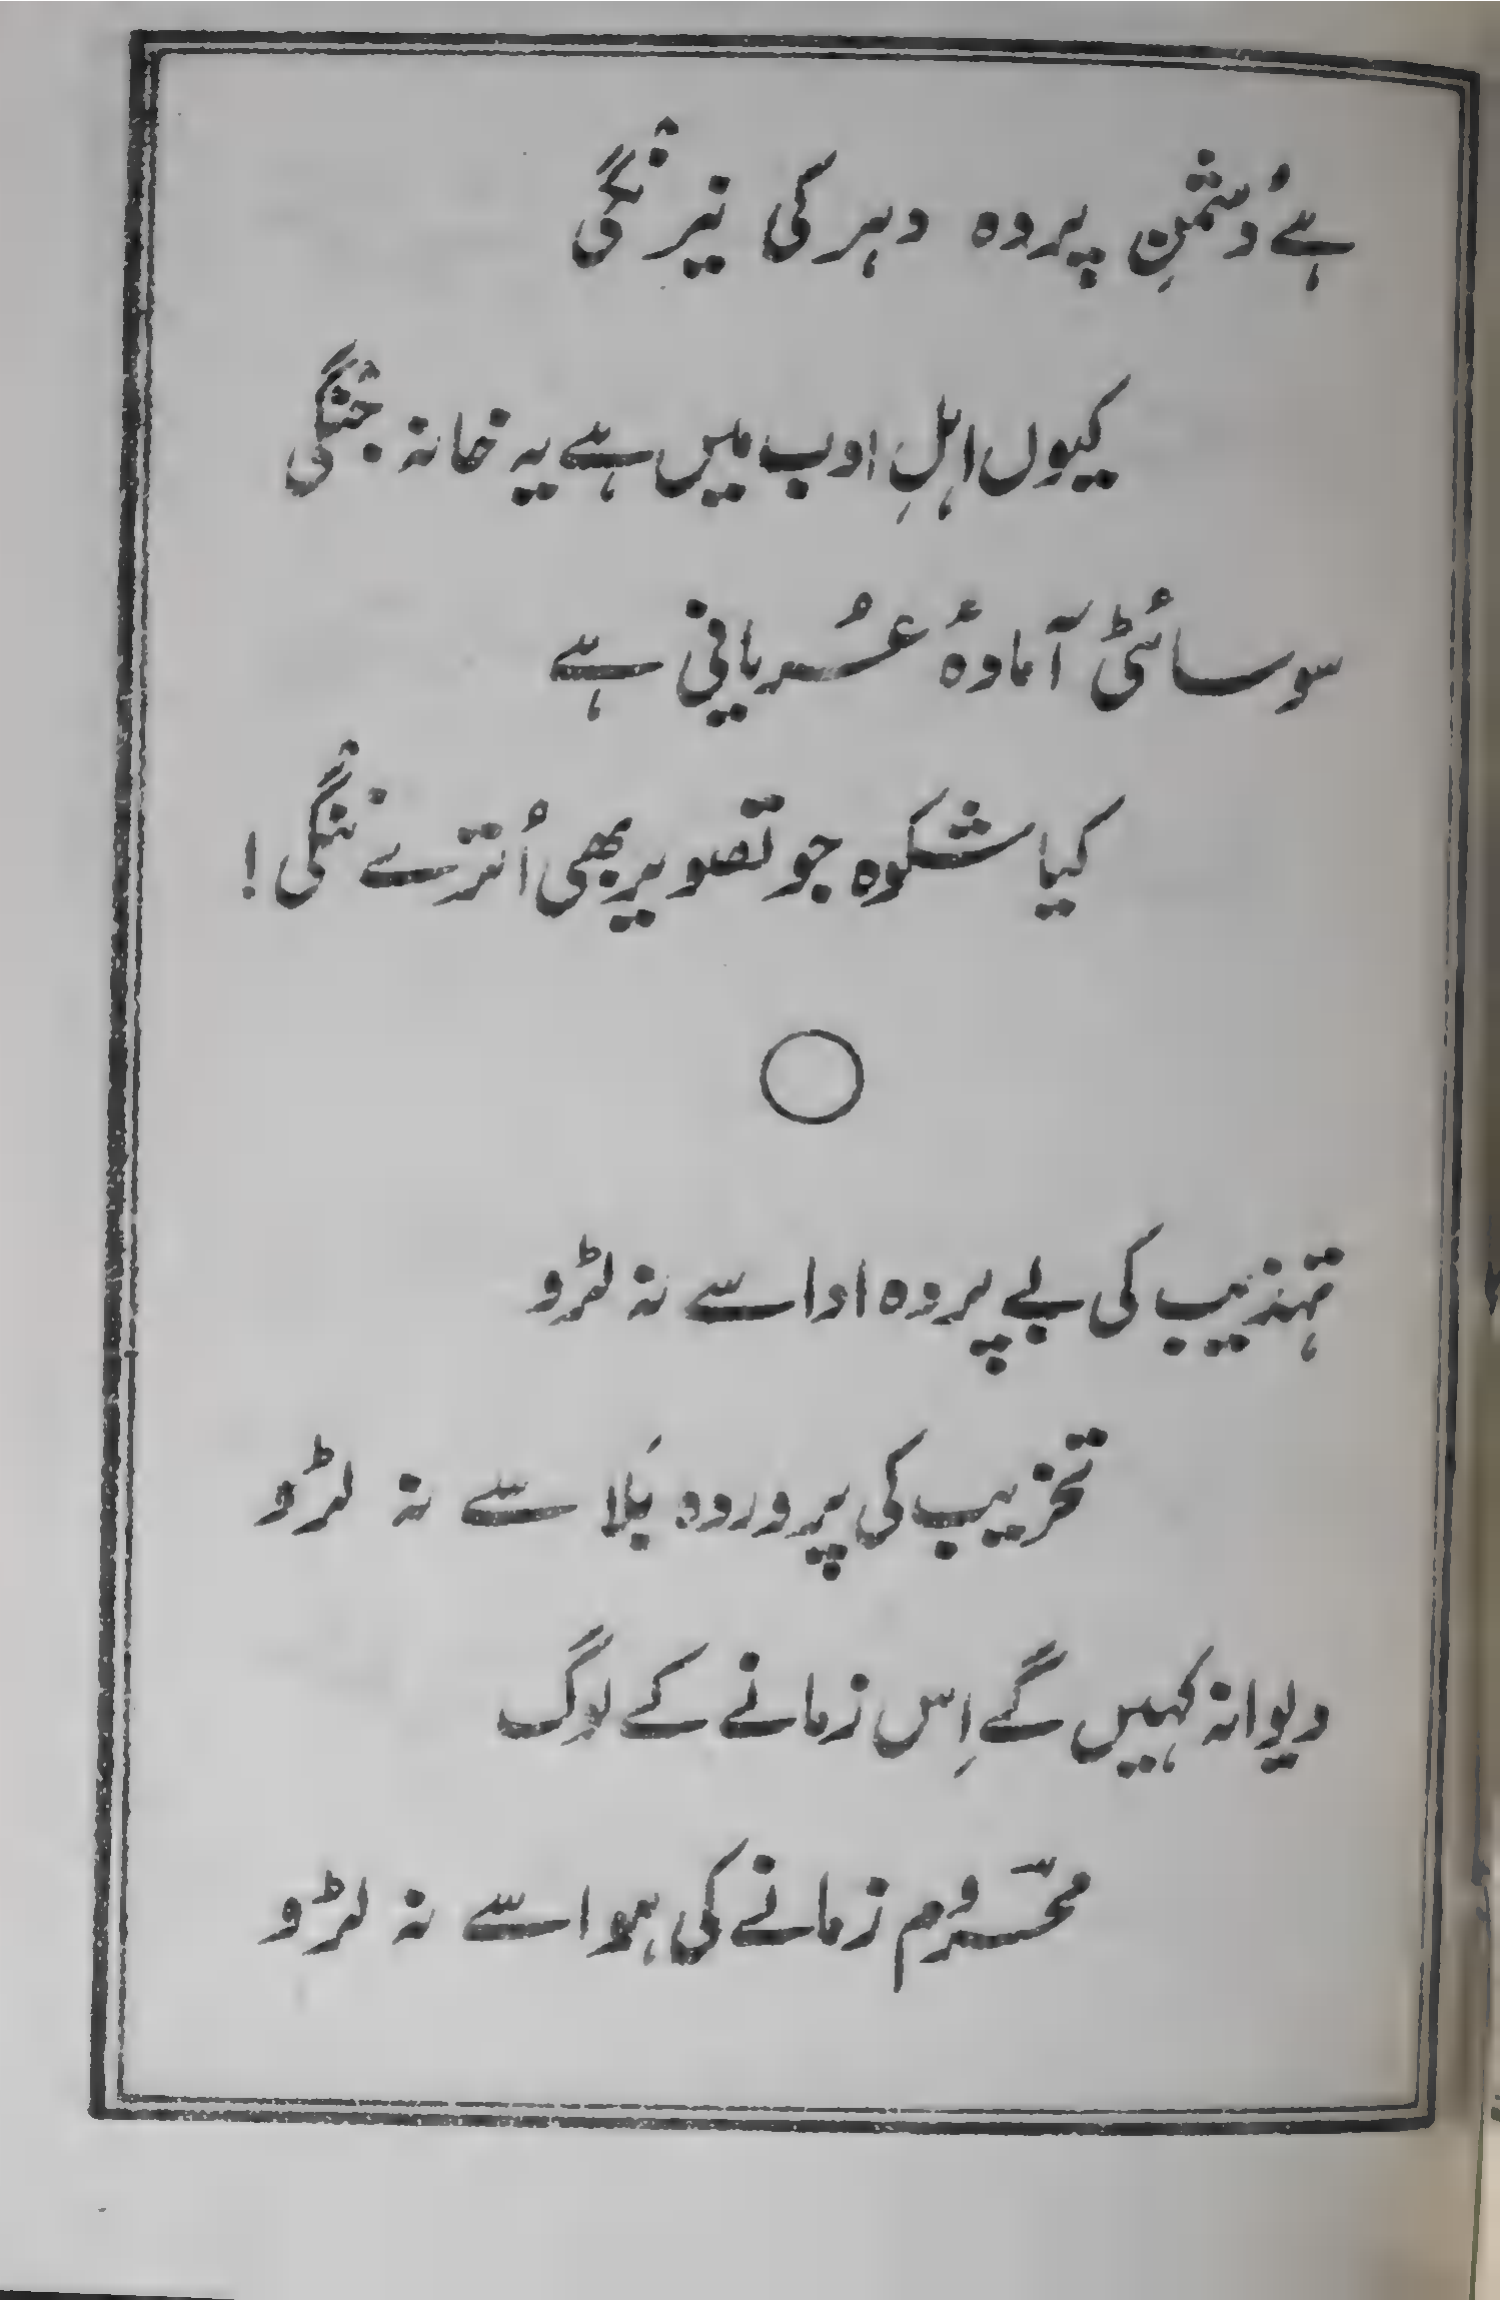 ہے دُشمنِ پردہ دہر کی نیرنگی
کیوں اہلِ ادب میں ہے یہ خانہ جنگی
سوسائٹی آمادۂ عُریانی ہے
کیا شکوہ جو تصویر بھی اُترے ننگی!
تہذیب کی بے پردہ ادا سے نہ لڑو
تخریب کی پروردہ بَلا سے نہ لڑو
دیوانہ کہیں گے اِس زمانے کے لوگ
محرومؔ زمانے کی ہوا سے نہ لڑو